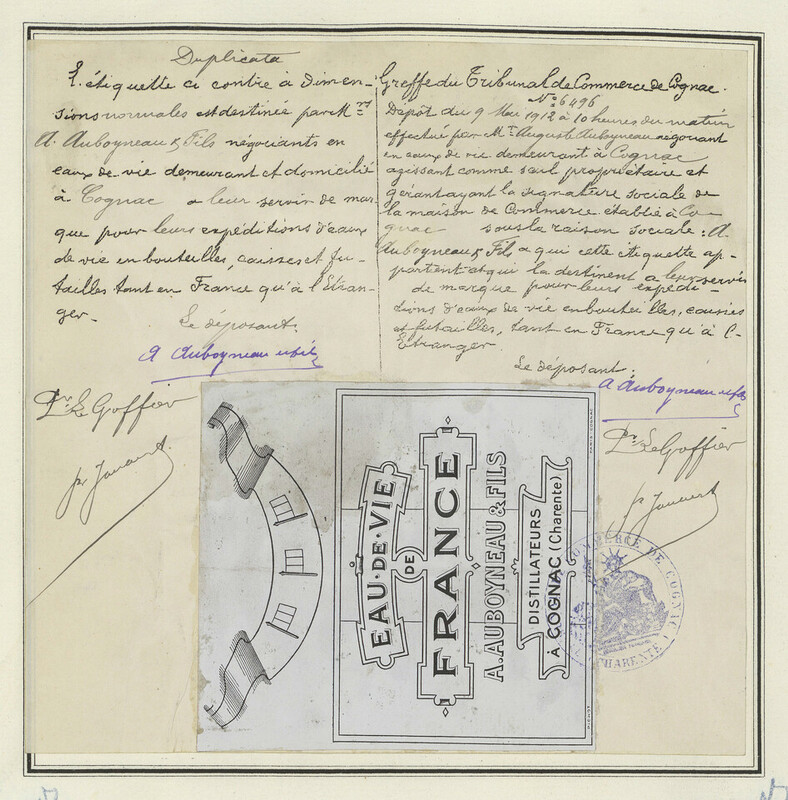 Duplicata
L'étiquette ci contre à dimen-
sions normales est destinée par Mrs
A. Auboyneau & Fils négociants en
eaux de vie demeurant et domicilié
à Cognac a leur servir de mar-
que pour leurs expéditions d'eaux
de vie en bouteilles, caisses et fu-
tailles tant en France qu'à l'Etran-
ger.
Le déposant.
A Auboyneau et fils
Pr. Le Goffier
Greffe du Tribunal de Commerce de Cognac.
No 6496
Dépôt du 9 Mai 1912 à 10 heures du matin
effectué par Mr Auguste Auboyneau négociant
en eaux de vie demeurant à Cognac
agissant comme seul propriétaire et
gérant ayant la signature sociale de
la maison de Commerce établie à Co-
gnac sous la raison sociale: A.
Auboyneau & Fils a qui cette étiquette ap-
partient et qui la destinent a leur servir
de marque pour leurs expédi-
tions d'eaux de vie en bouteilles, caisses
et futailles, tant en France qu'à l'-
Etranger
Le déposant:
A Auboyneau et fils
Pr. Le Goffier
EAU-DE-VIE
DE
FRANCE
A. AUBOYNEAU & FILS
DISTILLATEURS
À COGNAC (Charente)
COMMERCE DE COGNAC
(CHARENTE)